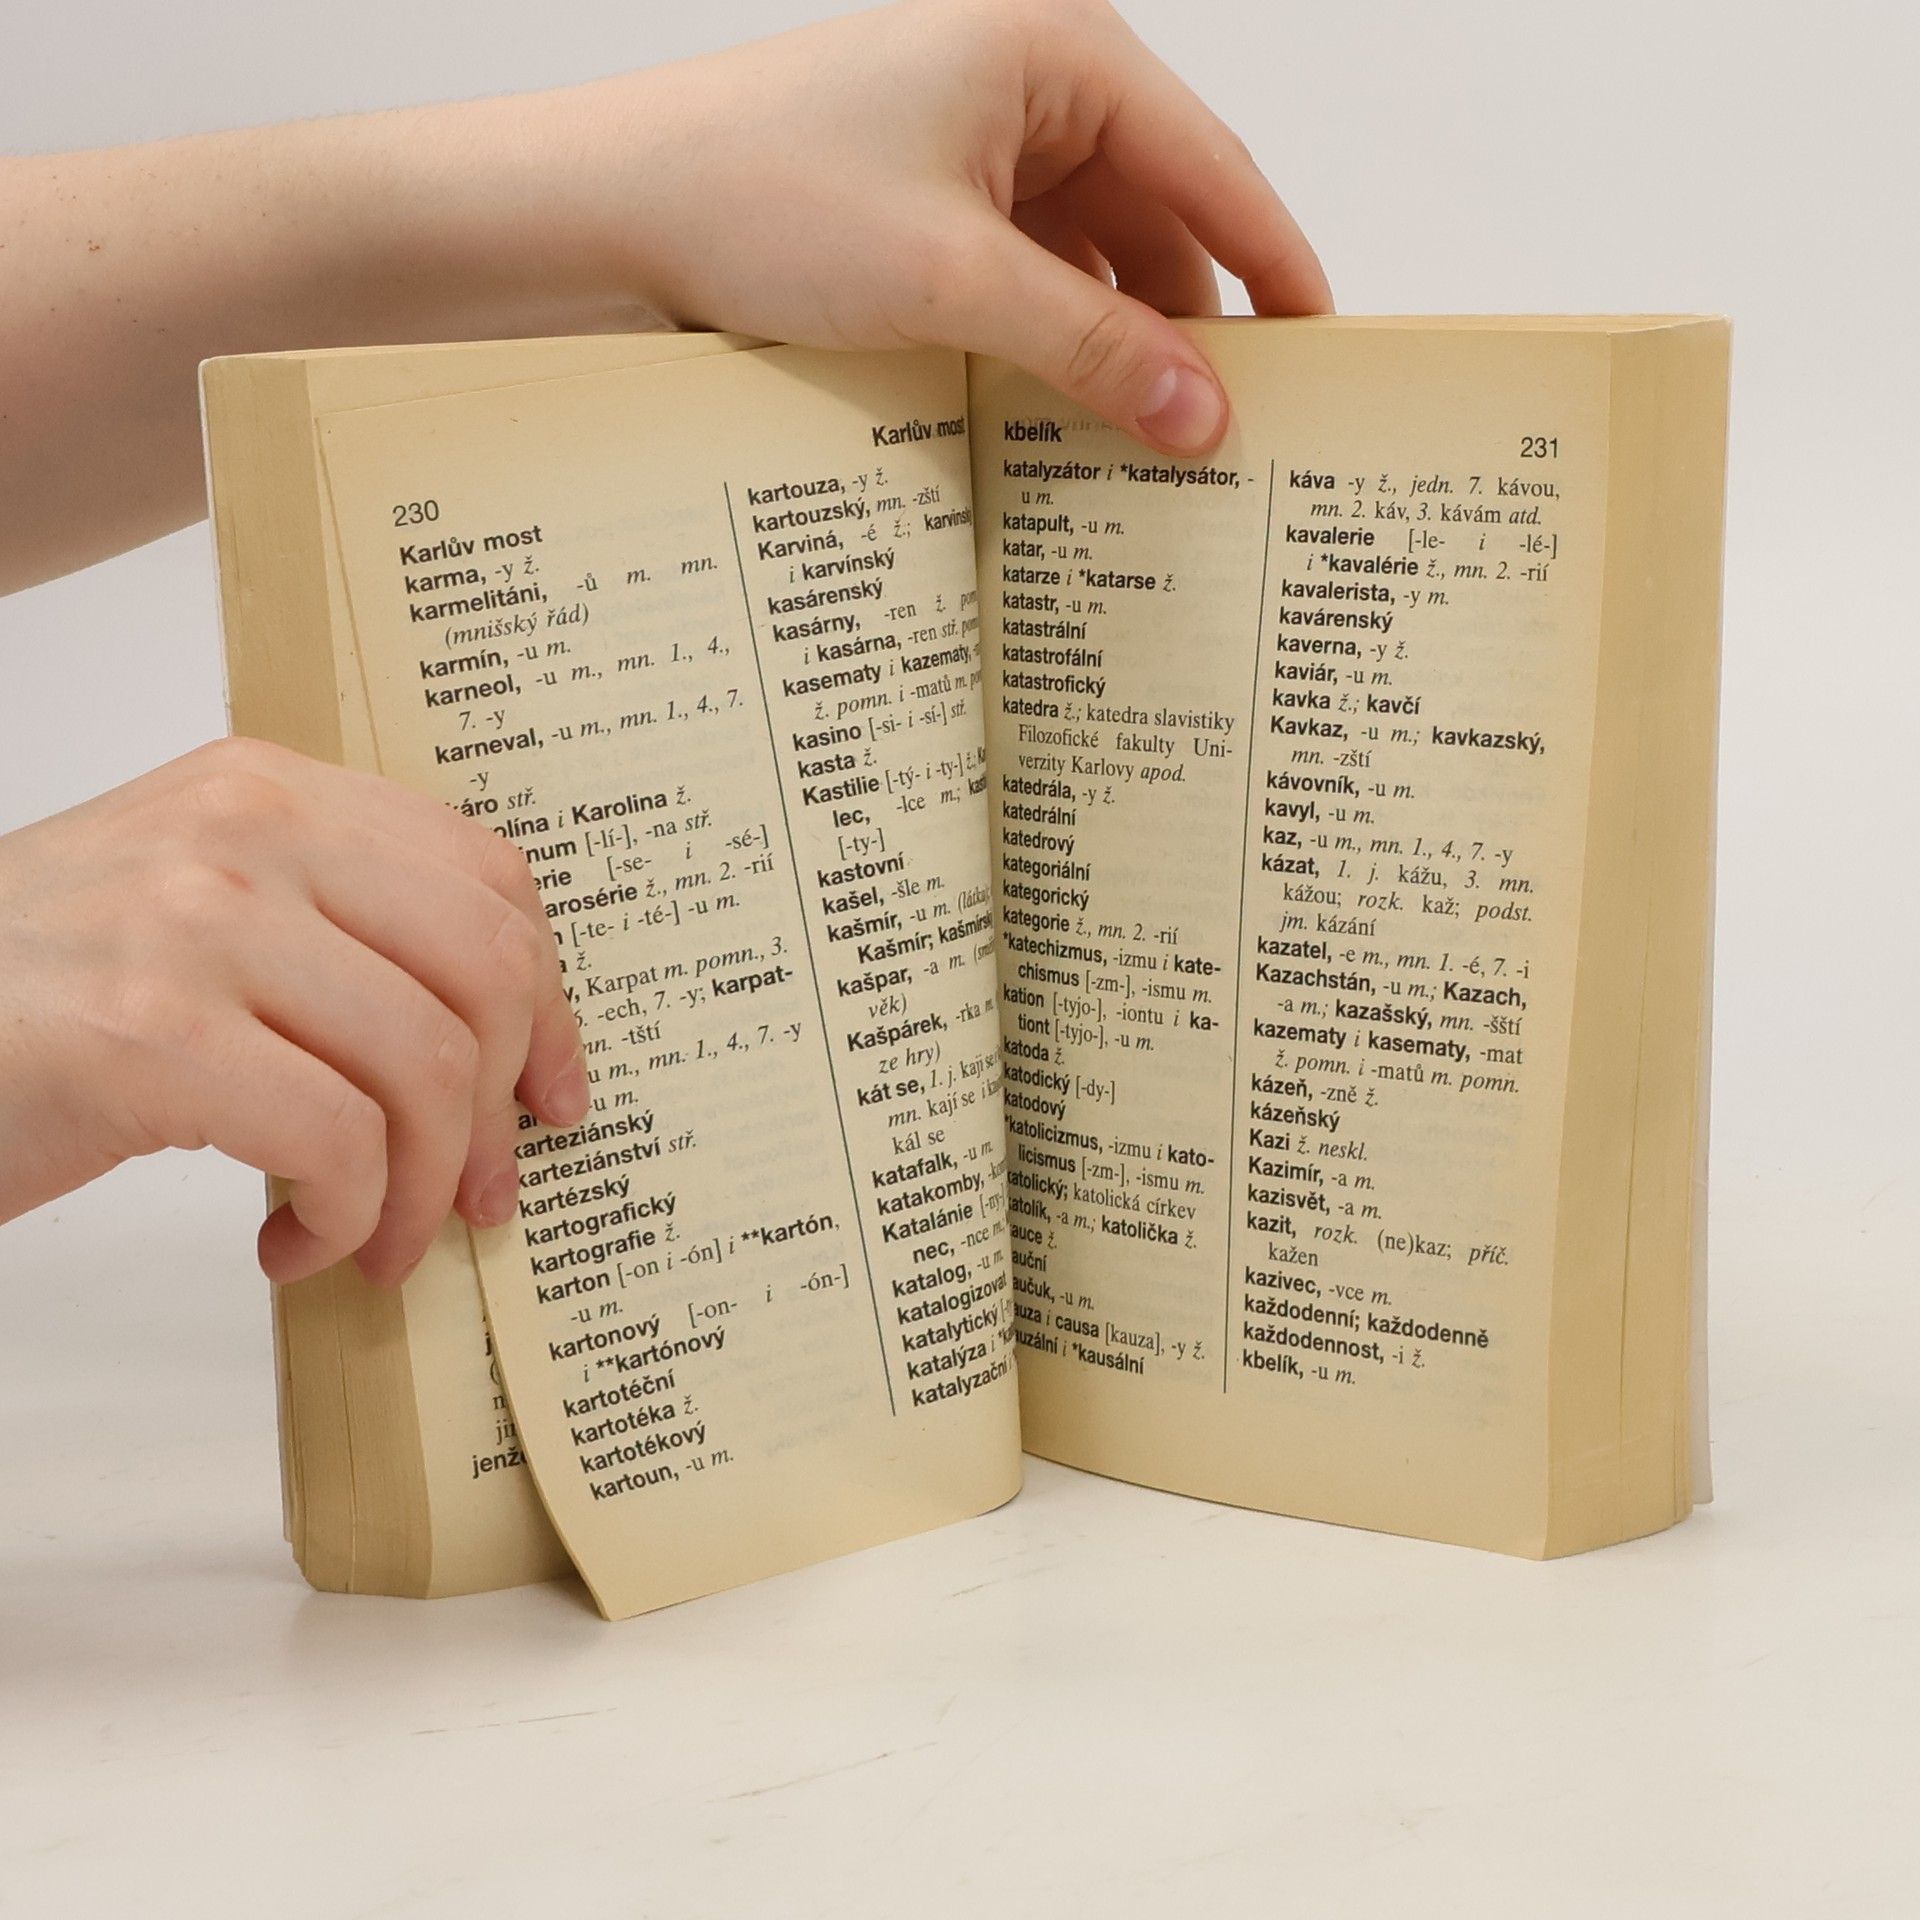 230
Karlův most
Karlův most
karma, -y ž.
karmelitáni, -ů m. mn.
(mnišský řád)
karmín, -u m.
karneol, -u m., mn. 1., 4.,
7. -y
karneval, -u m., mn. 1., 4., 7.
-y
káro stř.
i Karolina ž.
[-lí-], -na stř.
[-se- i -sé-]
ž., mn. 2. -rií
[-te- i -té-] -u m.
ž.
Karpat m. pomn., 3.
-ech, 7. -y; karpat-
-tští
m., mn. 1., 4., 7. -y
-u m.
karteziánský
karteziánství stř.
kartézský
kartografický
kartografie ž.
karton [-on i -ón] i **kartón,
-u m.
kartonový [-on- i -ón-]
i **kartónový
kartotéční
kartotéka ž.
kartotékový
kartoun, -u m.
kartouza, -y ž.
kartouzský, mn. -zští
Karviná, -é ž.; karvinský
i karvínský
kasárenský
kasárny, -ren ž.
i kasárna, -ren stř.
kasematy i kazematy,
ž. pomn. i -matů m.
kasino [-si- i -sí-] stř.
kasta ž.
Kastilie [-tý- i -ty-] ž.;
lec, -lce m.;
[-ty-]
kastovní
kašel, -šle m.
kašmír, -u m. (látka);
Kašmír; kašmírský
kašpar, -a m.
věk)
Kašpárek, -rka m.
ze hry)
kát se, 1. j. kaji se i
mn. kají se i
kál se
katafalk, -u m.
katakomby,
Katalánie
nec, -nce m.
katalog, -u m.
katalogizovat
katalytický
katalýza i
katalyzační i
kbelík
231
katalyzátor i *katalysátor, -
u m.
katapult, -u m.
katar, -u m.
katarze i *katarse ž.
katastr, -u m.
katastrální
katastrofální
katastrofický
katedra ž.; katedra slavistiky
Filozofické fakulty Uni-
verzity Karlovy apod.
katedrála, -y ž.
katedrální
katedrový
kategoriální
kategorický
kategorie ž., mn. 2. -rií
*katechizmus, -izmu i kate-
chismus [-zm-], -ismu m.
kation [-tyjo-], -iontu i ka-
tiont [-tyjo-], -u m.
katoda ž.
katodický [-dy-]
katodový
*katolicizmus, -izmu i kato-
licismus [-zm-], -ismu m.
katolický; katolická církev
katolík, -a m.; katolička ž.
ž.
-u m.
i causa [kauza], -y ž.
i *kausální
káva -y ž., jedn. 7. kávou,
mn. 2. káv, 3. kávám atd.
kavalerie [-le- i -lé-]
i *kavalérie ž., mn. 2. -rií
kavalerista, -y m.
kavárenský
kaverna, -y ž.
kaviár, -u m.
kavka ž.; kavčí
Kavkaz, -u m.; kavkazský,
mn. -zští
kávovník, -u m.
kavyl, -u m.
kaz, -u m., mn. 1., 4., 7. -y
kázat, 1. j. kážu, 3. mn.
kážou; rozk. kaž; podst.
jm. kázání
kazatel, -e m., mn. 1. -é, 7. -i
Kazachstán, -u m.; Kazach,
-a m.; kazašský, mn. -šští
kazematy i kasematy, -mat
ž. pomn. i -matů m. pomn.
kázeň, -zně ž.
kázeňský
Kazi ž. neskl.
Kazimír, -a m.
kazisvět, -a m.
kazit, rozk. (ne)kaz; příč.
kažen
kazivec, -vce m.
každodenní; každodenně
každodennost, -i ž.
kbelík, -u m.